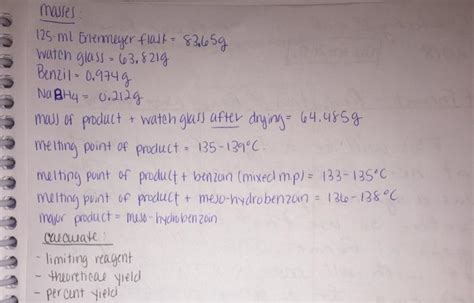 masses:
125-ml Erlenmeyer flask = 83.65g
Watch glass = 63.821g
Benzil = 0.974g
NaBH4 = 0.212g
mass of product + watch glass after drying = 64.485g
melting point of product = 135-139°C
melting point of product + benzoin (mixed m.p) = 133-135°C
melting point of product + meso-hydrobenzoin = 136-138°C
major product = meso-hydrobenzoin
calculate:
- limiting reagent
- theoretical yield
- percent yield